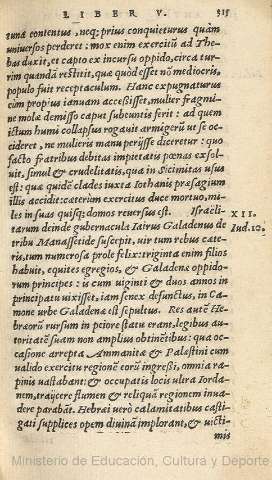 LIBER V. 515
tuna contentus, neq; prius conquieturus quàm
uniuersos perderet: mox enim exercitũ ad The
bas duxit, et capto ex incursu oppido, circa tur-
rim quandã restitit, quæ quòd esset nõ mediocris,
populo fuit receptaculum. Hanc expugnaturus
cùm propius ianuam accessisset, mulier fragmi-
ne molæ demisso caput subeuntis ferit: ad quem
ictum humi collapsus rogauit armigerũ ut se oc-
cideret, ne mulieris manu perijsse diceretur: quo
facto fratribus debitas impietatis pœnas exsol-
uit, simul & crudelitatis, qua in Sicimitas usus
est: quæ quidẽ clades iuxta Iothanis præsagium
illis accidit: cæterùm exercitus duce mortuo, mi-
les in suas quisq; domos reuersus est. Israëli-
tarum deinde gubernacula Iairus Galadenus de
tribu Manassetide suscepit, uir tum rebus cæte-
ris, tum numerosa prole felix: triginta enim filios
habuit, equites egregios, & Galadenæ oppido-
rum principes: is cum uiginti & duos annos in
principatu uixisset, iam senex defunctus, in Ca-
mone urbe Galadenæ est sepultus. Res autẽ He-
bræorũ rursum in peiore statu erant, legibus au-
toritatẽ suam non amplius obtinẽtibus: qua oc-
casione arrepta Ammanitæ & Palæstini cum
ualido exercitu regionẽ eorũ ingreßi, omnia ra-
pinis uastabant: & occupatis locis ultra Iorda-
nem, traijcere flumen & reliquã regionem inua-
dere parabãt. Hebræi uerò calamitatibus casti-
gati supplices opem diuinã implorant, & uicti-
mis
XII.
Iud. 10.
Ministerio de Educación, Cultura y Deporte